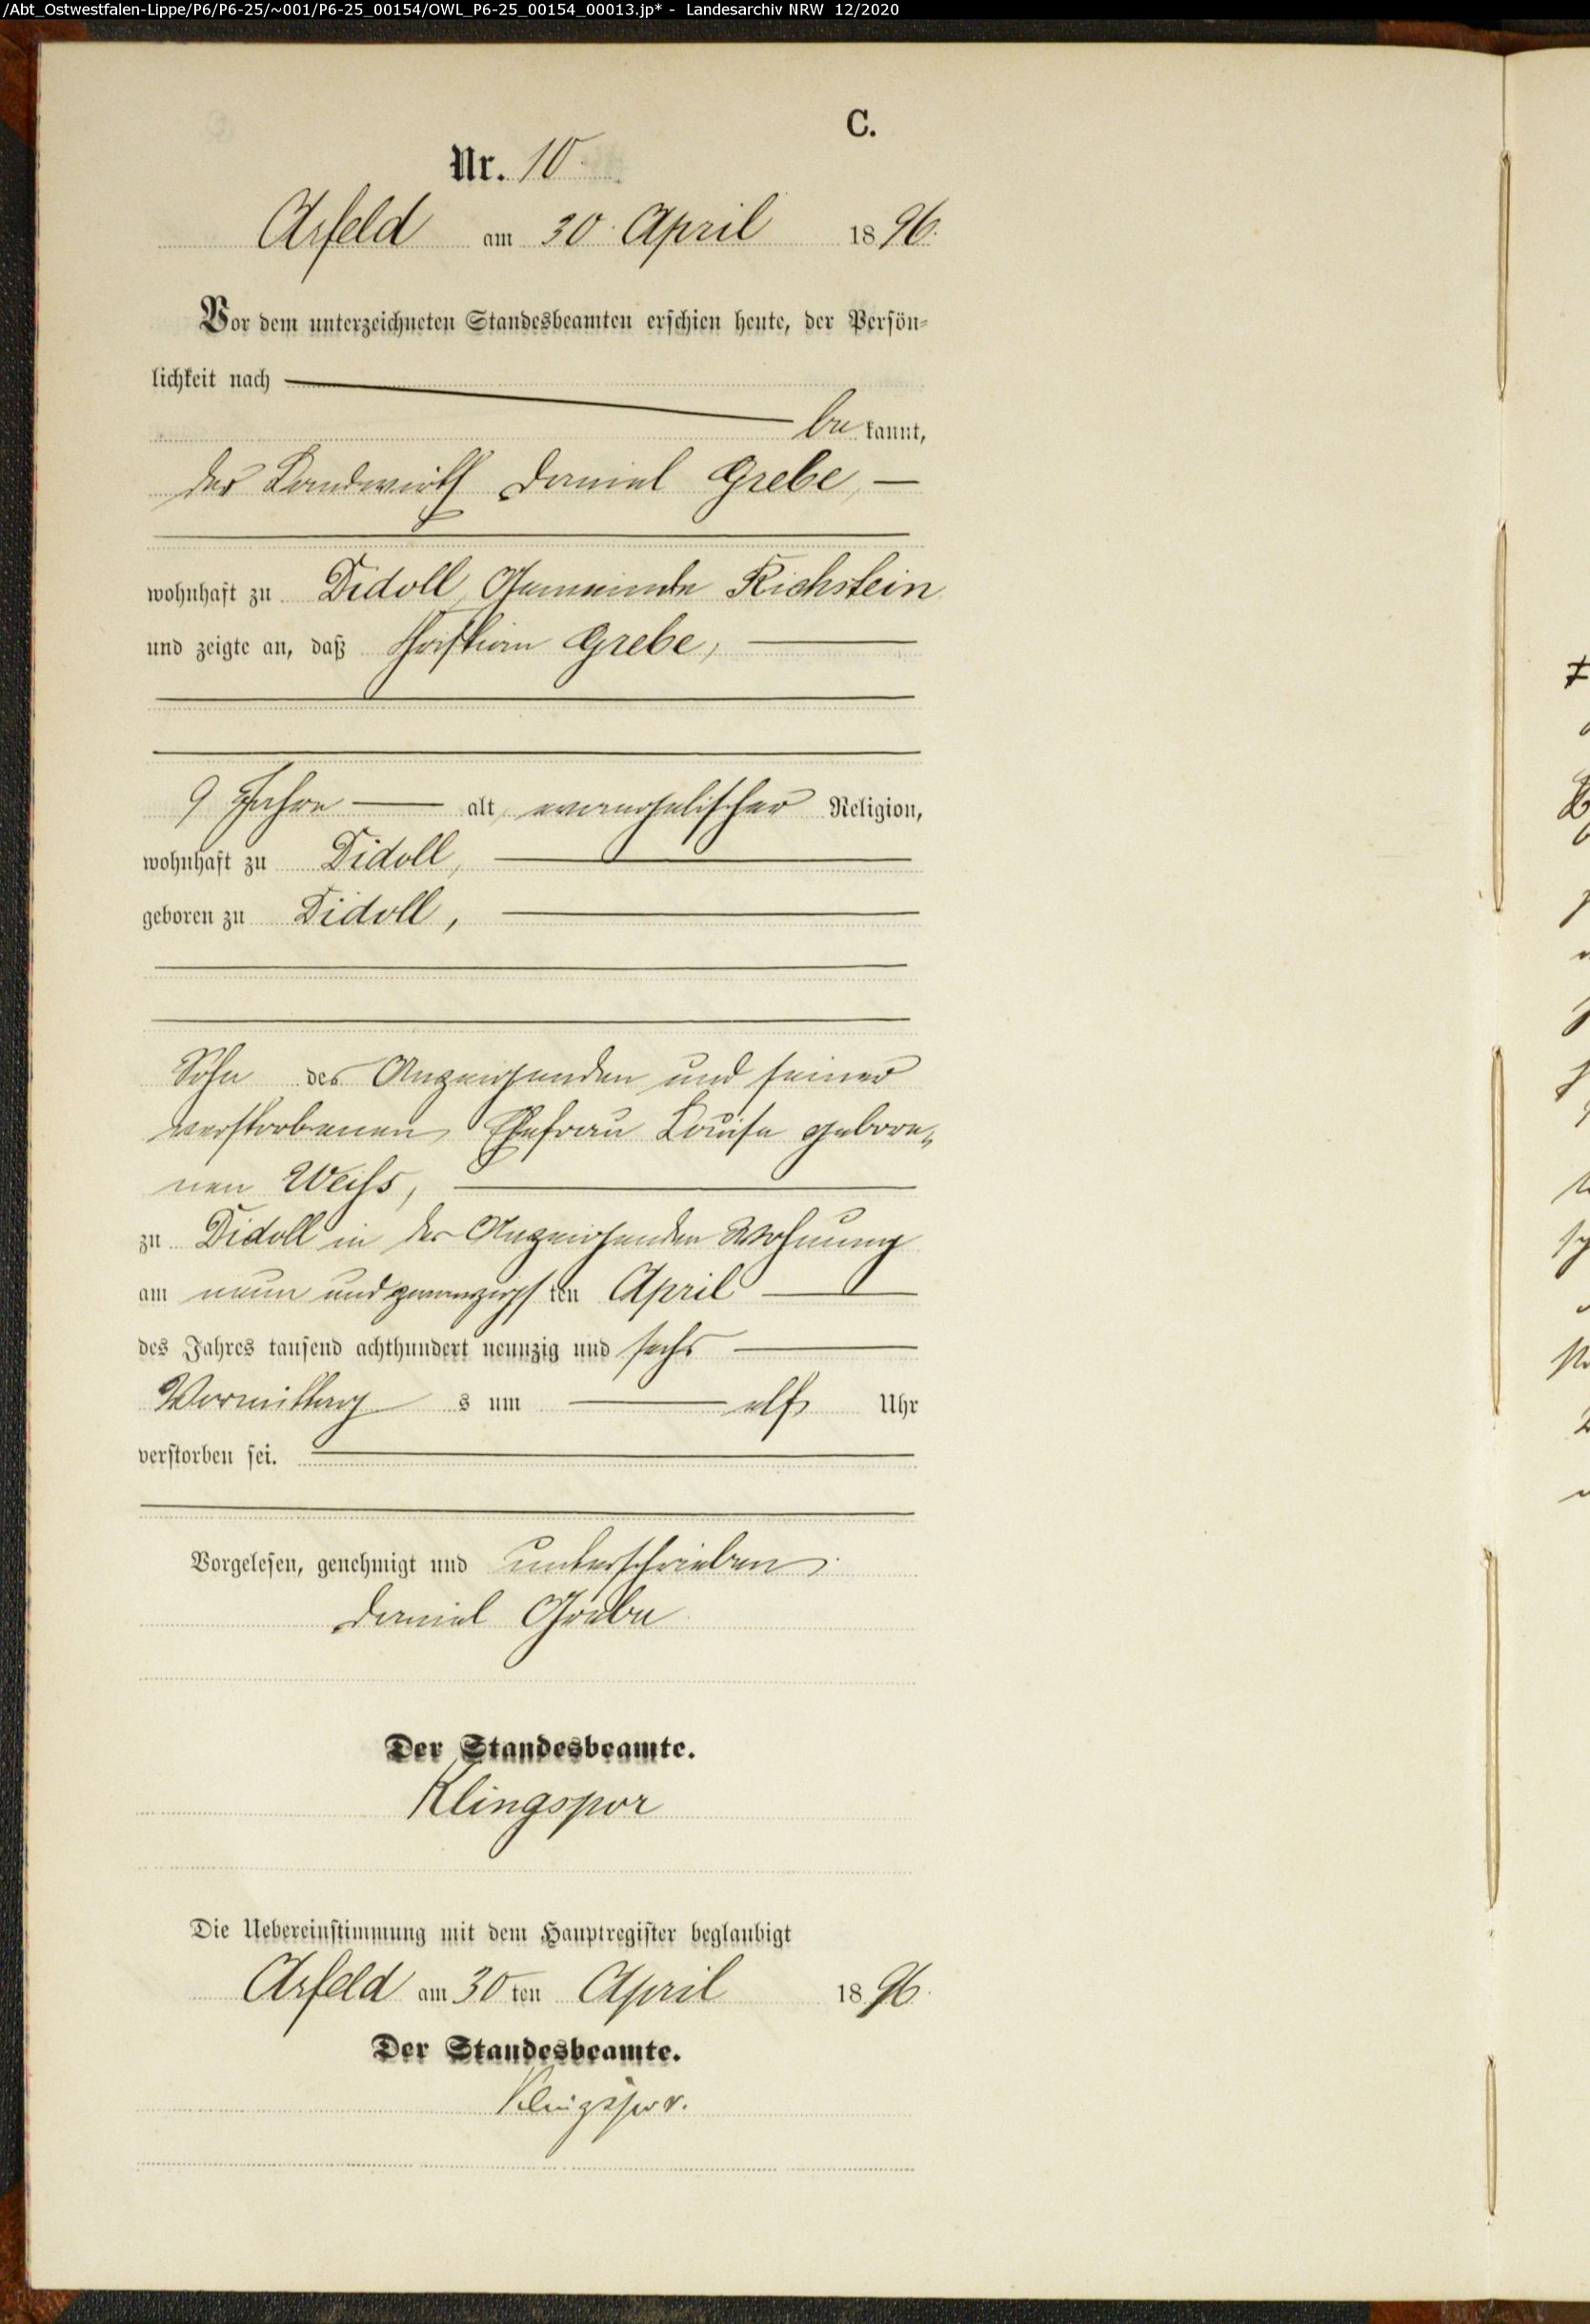 /Abt_Ostwestfalen-Lippe/P6/P6-25/~001/P6-25_00154/OWL_P6-25_00154_00013.jp* - Landesarchiv NRW 12/2020
C.
Nr. 10
Arfeld am 30. April 1896.
Vor dem unterzeichneten Standesbeamten erschien heute, der Persön-
lichkeit nach
be kannt,
der Landwirth Daniel Grebe,
wohnhaft zu Didoll, Gemeinde Richstein
und zeigte an, daß Christian Grebe,
9 Jahre alt, evangelischer Religion,
wohnhaft zu Didoll,
geboren zu Didoll,
Sohn des Anzeigenden und seiner
verstorbenen Ehefrau Louise gebore-
nen Weiss,
zu Didoll in des Anzeigenden Wohnung
am neun und zwanzigsten April
des Jahres tausend achthundert neunzig und sechs
Vormittags um elf Uhr
verstorben sei.
Vorgelesen, genehmigt und unterschrieben.
Daniel Grebe
Der Standesbeamte.
Klingspor
Die Uebereinstimmung mit dem Hauptregister beglaubigt
Arfeld am 30ten April 1896.
Der Standesbeamte.
Klingspor.